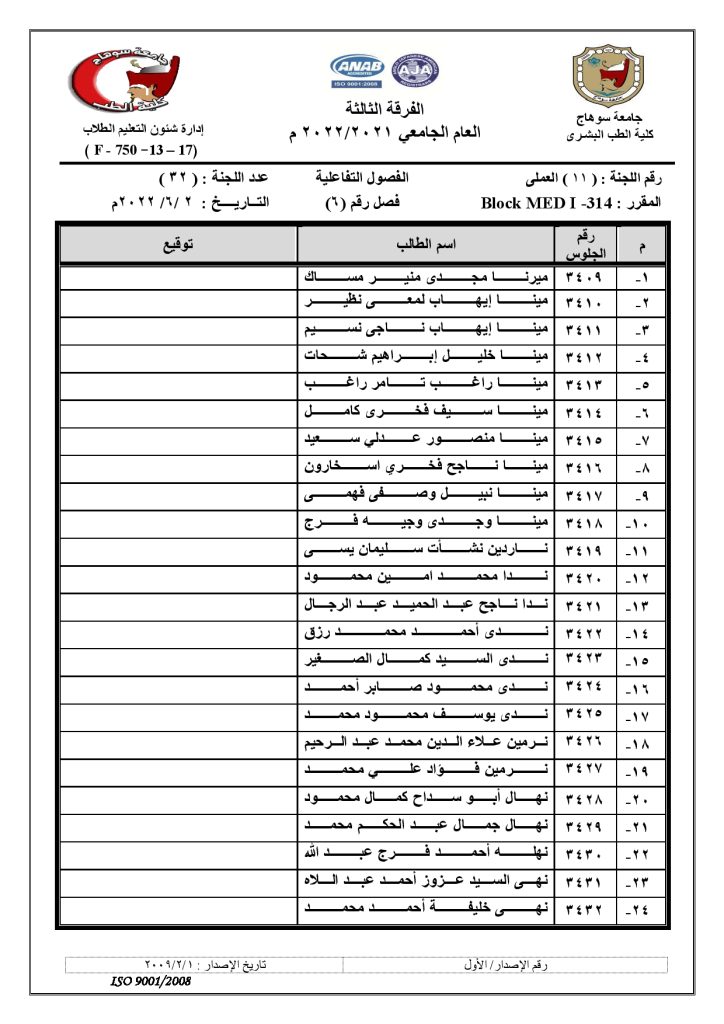 جامعة سوهاج
كلية الطب
إدارة شئون التعليم الطلاب
( F - 750 –13 – 17)
ANAB
ACCREDITED
ISO 9001:2008
AJA
الفرقة الثالثة
العام الجامعي ٢٠٢٢/٢٠٢١ م
جامعة سوهاج
كلية الطب البشرى
رقم اللجنة : ( ١١ ) العملى الفصول التفاعلية عدد اللجنة : ( ٣٢ )
المقرر : Block MED I -314 فصل رقم (٦) التـاريـــخ : ٢ /٦/ ٢٠٢٢م
م رقم الجلوس اسم الطالب توقيع
١- ٣٤٠٩ ميرنا مجدى منير مساك
٢- ٣٤١٠ مينا إيهاب لمعى نظير
٣- ٣٤١١ مينا إيهاب ناجى نسيم
٤- ٣٤١٢ مينا خليل إبراهيم شحات
٥- ٣٤١٣ مينا راغب تامر راغب
٦- ٣٤١٤ مينا سيف فخرى كامل
٧- ٣٤١٥ مينا منصور عدلي سعيد
٨- ٣٤١٦ مينا ناجح فخري اسخارون
٩- ٣٤١٧ مينا نبيل وصفى فهمى
١٠- ٣٤١٨ مينا وجدى وجيه فرج
١١- ٣٤١٩ ناردين نشأت سليمان يسى
١٢- ٣٤٢٠ ندا محمد امين محمود
١٣- ٣٤٢١ ندا ناجح عبد الحميد عبد الرجال
١٤- ٣٤٢٢ ندى أحمد محمد رزق
١٥- ٣٤٢٣ ندى السيد كمال الصغير
١٦- ٣٤٢٤ ندى محمود صابر أحمد
١٧- ٣٤٢٥ ندى يوسف محمود محمد
١٨- ٣٤٢٦ نرمين علاء الدين محمد عبد الرحيم
١٩- ٣٤٢٧ نرمين فؤاد علي محمد
٢٠- ٣٤٢٨ نهال أبو سداح كمال محمود
٢١- ٣٤٢٩ نهال جمال عبد الحكم محمد
٢٢- ٣٤٣٠ نهله أحمد فرج عبد الله
٢٣- ٣٤٣١ نهى السيد عزوز أحمد عبد اللاه
٢٤- ٣٤٣٢ نهى خليفة أحمد محمد
رقم الإصدار/ الأول تاريخ الإصدار : ٢٠٠٩/٢/١
ISO 9001/2008